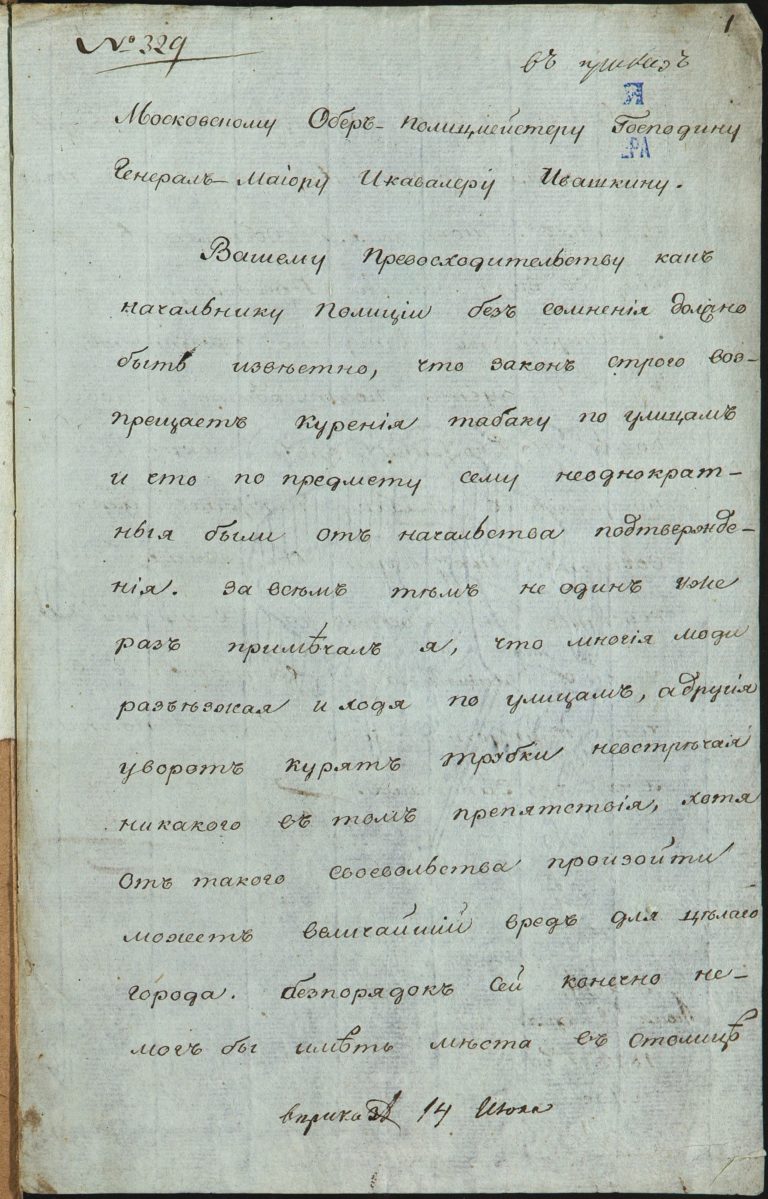 1
№ 329
въ приказъ
Московскому Оберъ-полицмейстеру Господину
Генералъ-Маіору Икавалеру Ивашкину.
Вашему Превосходительству какъ
начальнику Полиціи безъ сомненія должно
быть извѣстно, что законъ строго вос-
прещаетъ куренія табаку по улицамъ
и что по предмету сему неоднократ-
ныя были отъ начальства подтвержде-
нія. За всѣмъ тѣмъ не одинъ уже
разъ примѣчалъ я, что многія люди
разъѣзжая и ходя по улицамъ, а другія
уворотъ курятъ трубки невстрѣчая
никакого въ томъ препятствія, хотя
отъ такого своевольства произойти
можетъ величайшій вредъ для цѣлаго
города. безпорядокъ сей конечно не-
могъ бы имѣть мѣста въ столицѣ
14 Июня